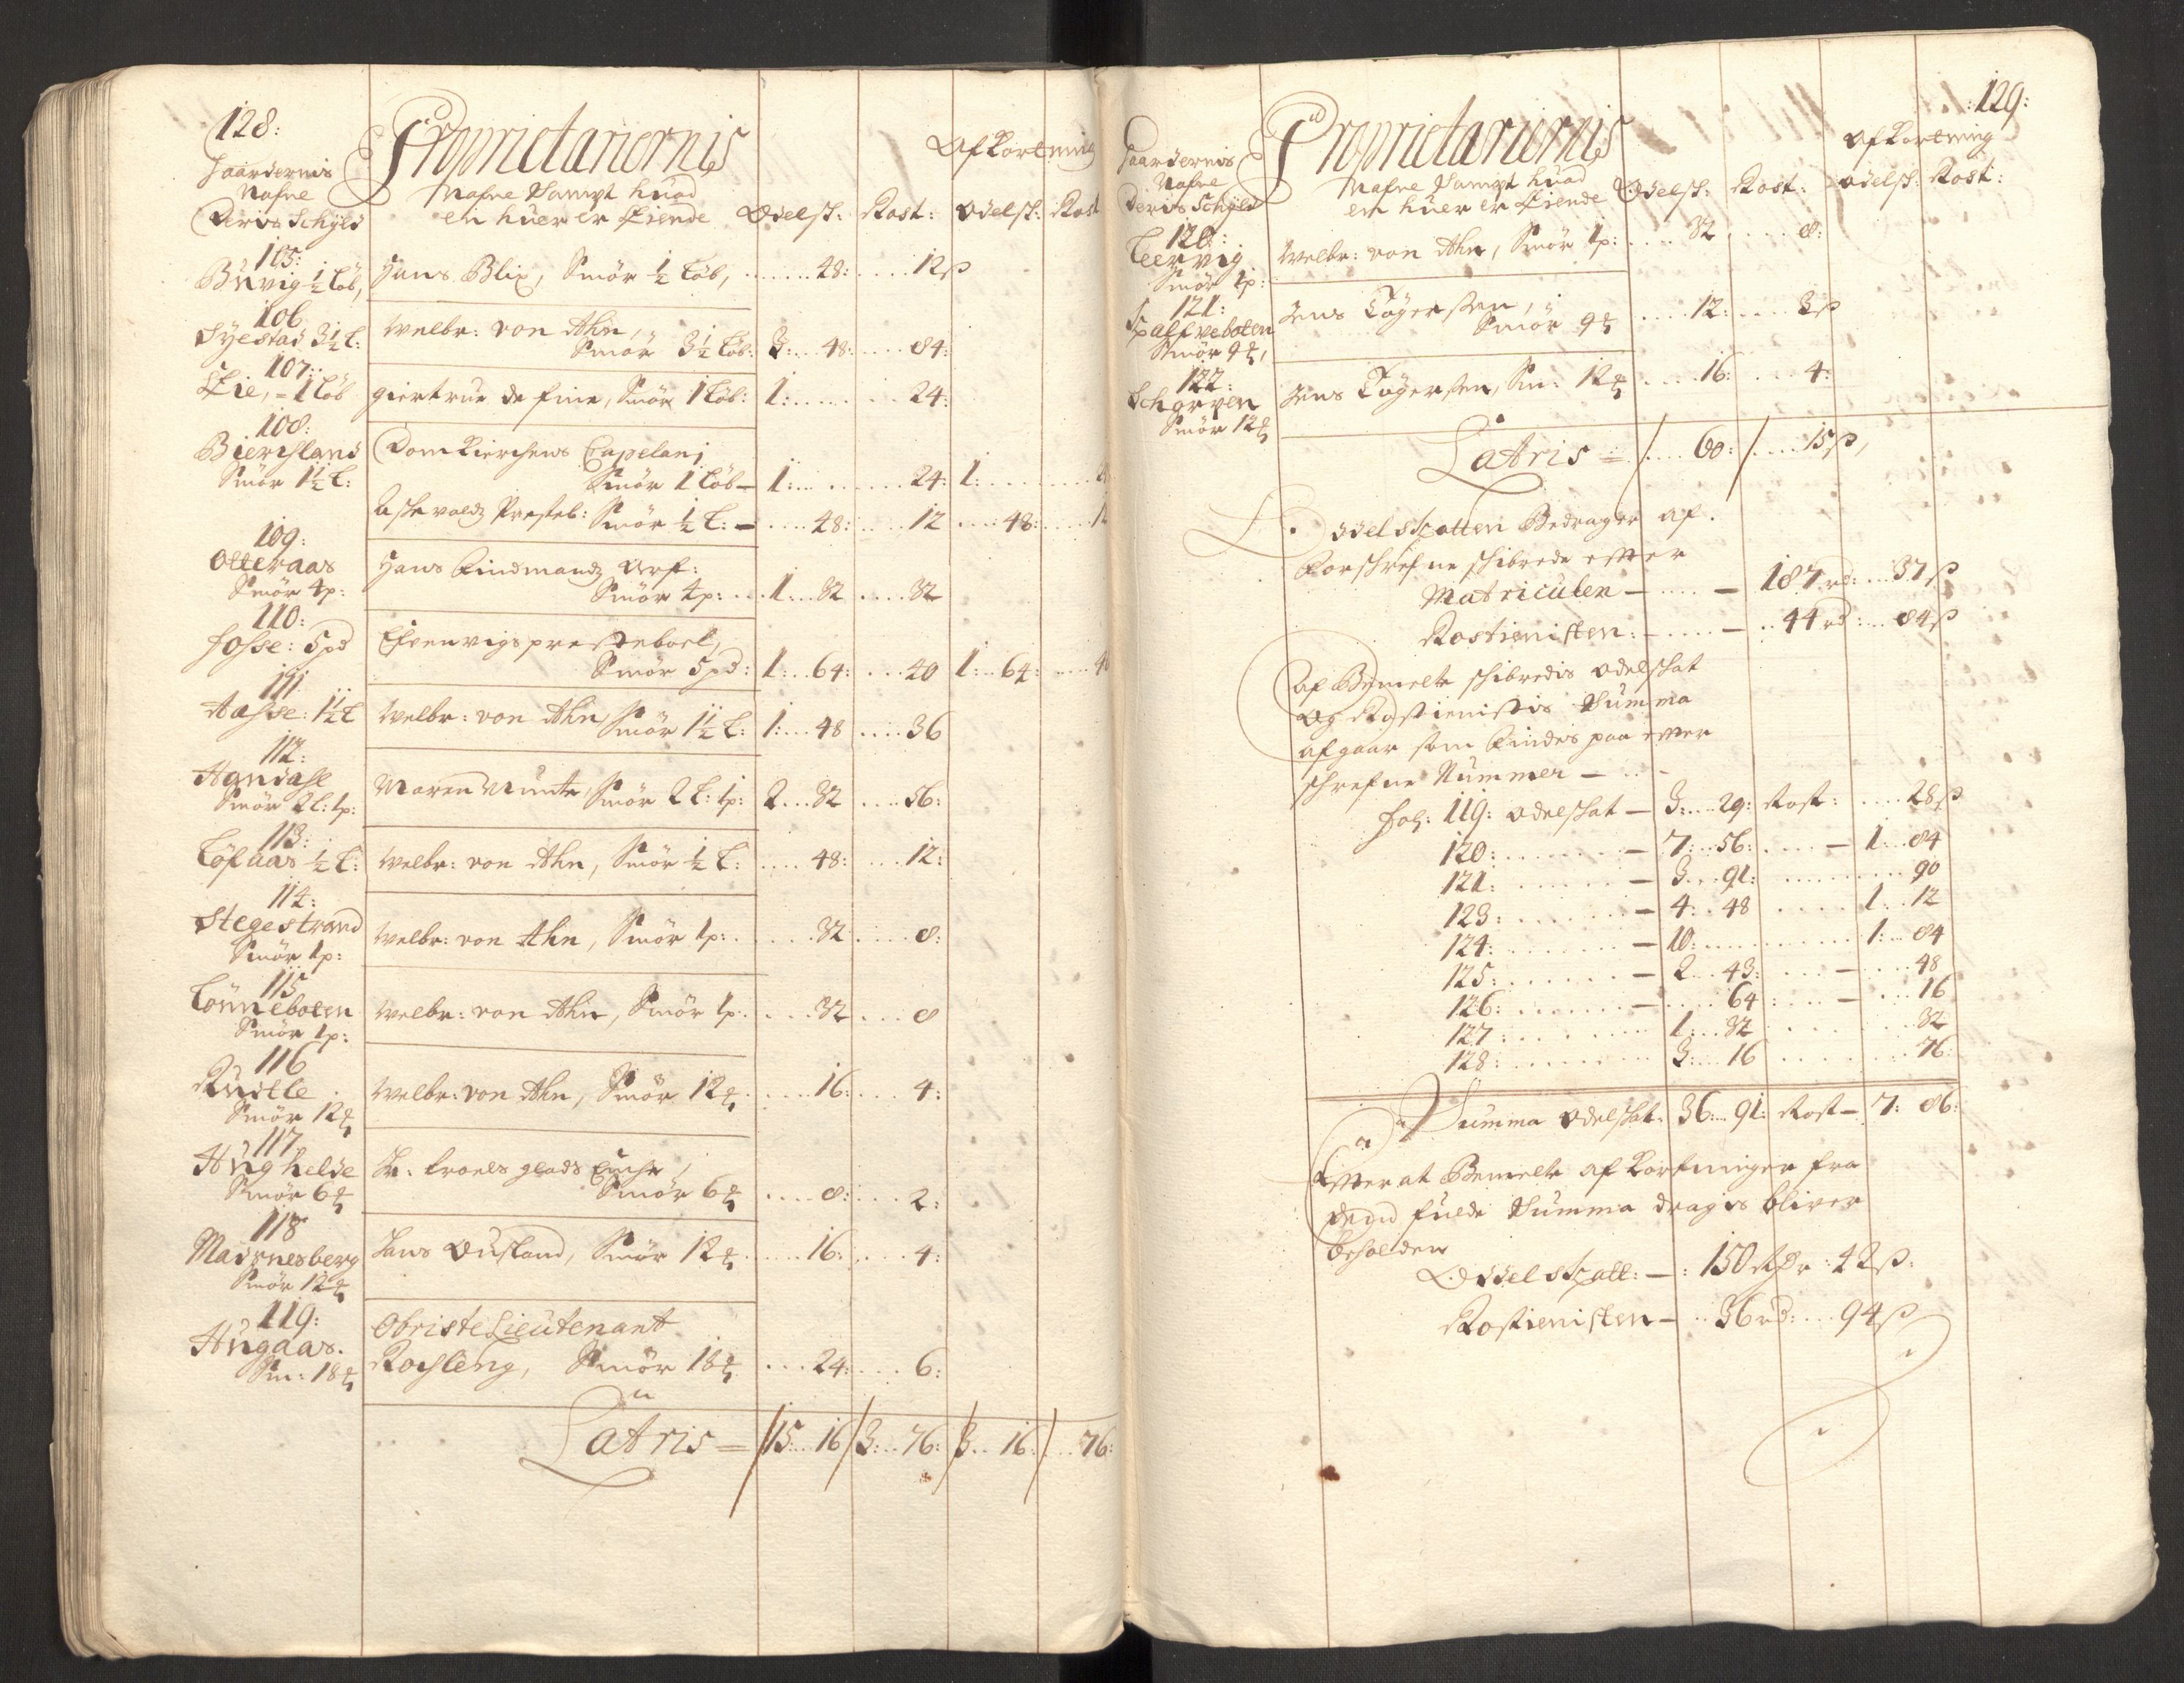 128:
Gaardernis
Nafne
Deris Schyld
Proprietariernis
Nafne Sampt huad
en huer er Eiende
Odelsk: Rost:
Afkortning
Odelsk: Rost
105:
Buvig ½ Løb,
Hans Blix, Smør ½ Løb, 48: 12 ß
106
Syestad 3½ L:
Welbr: von Ahn,
Smør 3½ Løb: 3: 48: 84:
107:
Eie, - 1 Løb
giertrue de fine, Smør 1 Løb: 1: 24:
108:
Bierchland
Smør 1½ L:
Domkierchens Capelani
Smør 1 Løb - 1: 24: 1:
Aschevolds Presteb: Smør ½ L: - 48: 12 48: 12
109:
Otteraas
Smør 4p:
Hans Lindmands Arf:
Smør 4p: 1: 32 32
110:
Fosse: 5pd
Efvenvigs presteboel,
Smør 5pd: 1: 64: 40 1: 64: 40
111
Aasse: 1½ L
Welbr: von Ahn, Smør 1½ L: 1: 48 36
112:
Handahl
Smør 2 L: 1p:
Maren Munte, Smør 2 L: 1p: 2 32 56:
113:
Løfaas ½ L:
Welbr: von Ahn, Smør ½ L: 48: 12:
114:
Stegestrand
Smør 1p:
Welbr: von Ahn, Smør 1p: 32 8:
115
Lønneboten
Smør 1p:
Welbr: von Ahn, Smør 1p: 32 8
116
Rustle
Smør 12
Welbr: von Ahn, Smør 12 16: 4:
117
Hughelde
Smør 6
Sr: Troels glads Enche,
Smør 6 8: 2:
118
Madrnesberg
Smør 12
Hans Ousland, Smør 12 16: 4:
119:
Hugaas.
Sm: 18
Obriste Lieutenant
Rochleng, Smør 18 24: 6:
Latris = 15 16 3: 76: 3 16: 76:
129:
Gaardernis
Nafne
Deris Schyld
Proprietariernis
Nafne Sampt huad
en huer er Eiende
Odelsk: Rost:
Afkortning
Odelsk: Rost:
120:
Leervig
Smør 1p:
Welbr: von Ahn, Smør 1p: 32 8:
121:
Kalfveboten
Smør 9
Jens Tøgersen,
Smør 9 12: 3 ß
122:
Schorven
Smør 12
Jens Tøgersen, Sm: 12 16: 4:
Latris = 60: 15 ß,
Odelskatten Bedrager af
Forschrefne schibrede efter
Matriculen - - 187 rd: 37 ß
Rostienisten: - - 44 rd: 84 ß
Af Bemelte schibredis odelskat
og Rostienistis Summa
afgaar som findis paa efter
schrefne Nummer -
Fol: 119: odelskat - 3: 29: Rost: 28 ß
120: - 7: 56: - 1: 84
121: - 3 91: 90
123: - 4: 48 1: 12
124: - 10: 1: 84
125: - 2 43: - 48
126: - 64: - 16
127: 1: 32 32
128: 3: 16 76:
Summa Odelskat: 36: 91: Rost - 7: 86:
Efterat Bemelte afkortninger fra
dend fulde Summa dragis bliver
beholden
Odelskatt: - : 150 Rdr: 42 ß:
Rostienisten - 36 rd: 94 ß